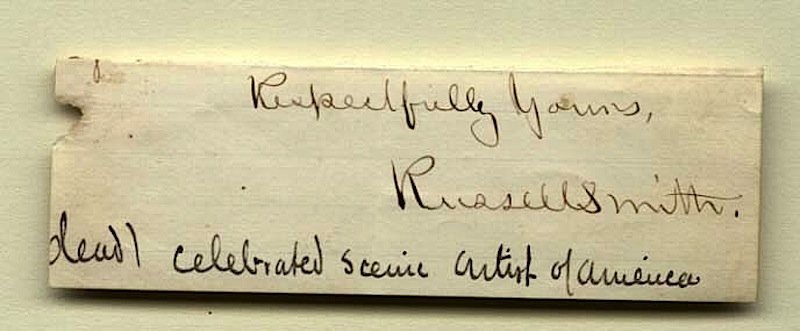 Respectfully Yours,
Russell Smith.
dead) celebrated scenic artist of america